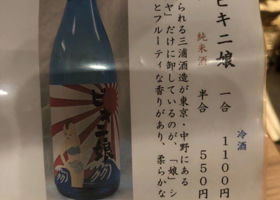 ビキニ娘
純米酒
一合 1100円
半合 550円
冷酒
られる三浦酒造が東京・中野にある
ヤ」だけに卸しているのが、「娘」シ
とフルーティな香りがあり、柔らかな
ビキニ娘